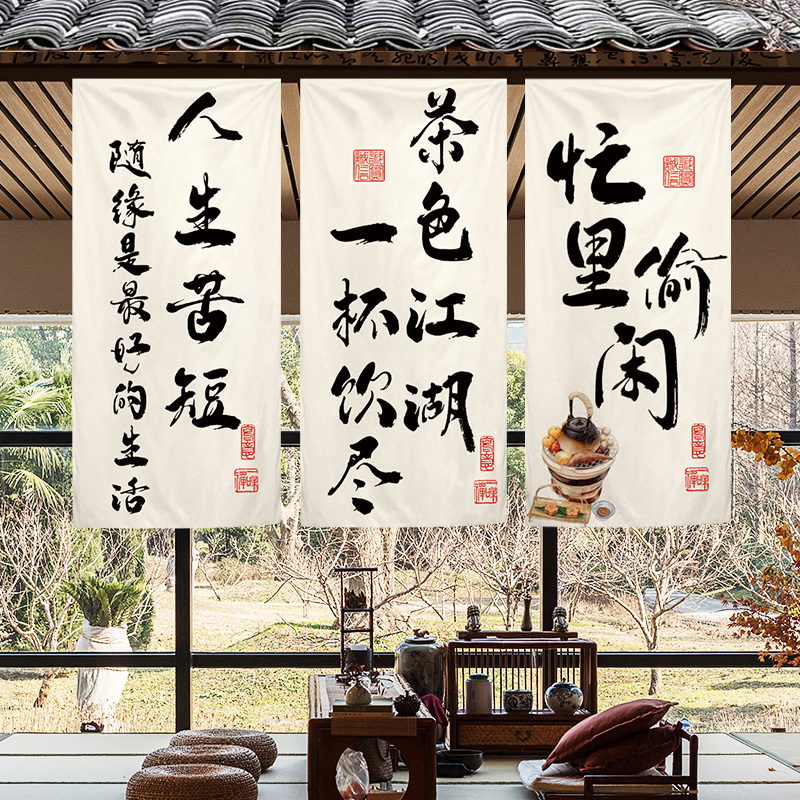 忙里偷闲
茶色江湖
一杯饮尽
人生苦短
随缘是最好的生活